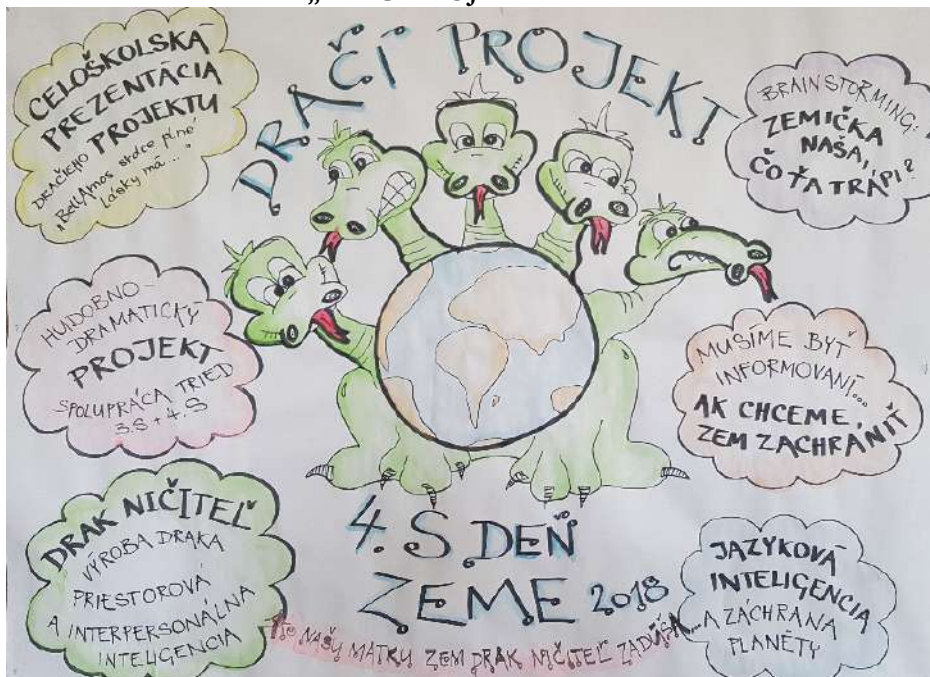 DRAČÍ PROJEKT
CELOŠKOLSKÁ
PREZENTÁCIA
DRAČIEHO PROJEKTU
„BellAmos srdce plné
lásky má..."
BRAINSTORMING:
ZEMIČKA
NAŠA,
ČO ŤA TRÁPI?
HUDOBNO-
DRAMATICKÝ
PROJEKT
SPOLUPRÁCA TRIED
3.S + 4.S
MUSÍME BYŤ
INFORMOVANÍ...
AK CHCEME
ZEM ZACHRÁNIŤ
DRAK NIČITEĽ
VÝROBA DRAKA
PRIESTOROVÁ
A INTERPERSONÁLNA
INTELIGENCIA
4.S DEŇ
ZEME 2018
NAŠU MATKU ZEM DRAK NIČITEĽ ZADÚŠA...
JAZYKOVÁ
INTELIGENCIA
A ZÁCHRANA
PLANÉTY